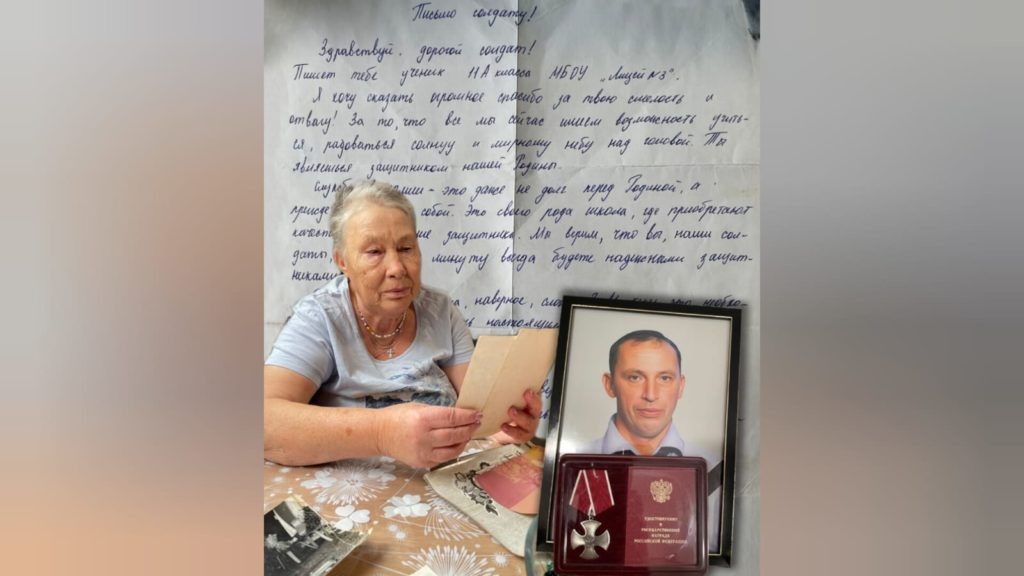 Письмо солдату!
Здравствуй, дорогой солдат!
Пишет тебе ученик 11 А класса МБОУ „Лицей №3".
Я хочу сказать огромное спасибо за твою смелость и
отвагу! За то, что все мы сейчас имеем возможность учить-
ся, радоваться солнцу и мирному небу над головой. Ты
являешься защитником нашей Родины.
это даже не долг перед Родиной, а
собой. Это своего рода школа, где приобретают
защитника. Мы верим, что вы, наши сол-
даты, минуту всегда будете надежными защит-
никами
наверное,
УДОСТОВЕРЕНИЕ
К
ГОСУДАРСТВЕННОЙ
НАГРАДЕ
РОССИЙСКОЙ ФЕДЕРАЦИИ